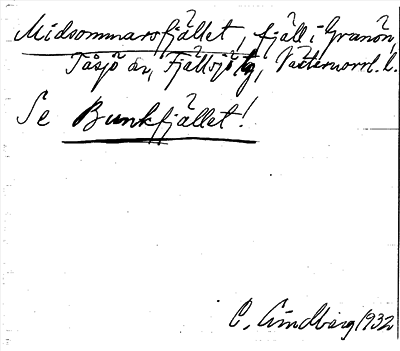 Midsommarsfjället, fjäll i Granön,
Tåsjö sn, Fjällsjö tg, Västernorrl. l.
Se Bunkfjället!
C. Lindberg 1932